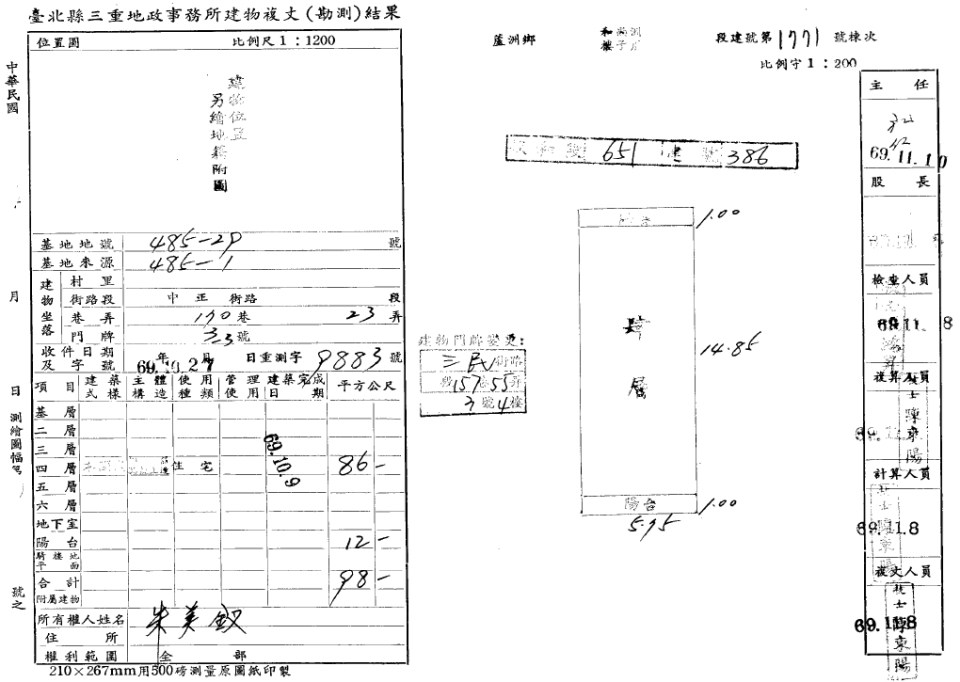 臺北縣三重地政事務所建物複丈(勘測)結果
位置圖 比例尺1:1200
建物位置
另繪地籍附圖
基地地號 485-29 號
基地來源 485-1
建物坐落
村里
街路段 中正 街路 段
巷弄 190巷 23弄
門牌 33號
收件日期及字號 69.10.27 年 月 日重測字 9883 號
項目 建築式樣 主體構造 使用種類 管理使用 建築完成日期 平方公尺
基層
二層
三層
四層 住宅 69.10.9 86-
五層
六層
地下室
陽台 12-
騎樓地平面
合計 98-
附屬建物
所有權人姓名 朱美釵
住所
權利範圍 全部
210×267mm用500磅測量原圖紙印製
中華民國
月
日
測繪圖幅
號之
蘆洲鄉
樓子
段建號第1771號棟次
比例字1:200
651 建號 386
陽台 1.00
肆層
14.85
陽台 1.00
5.95
建物門牌變更:
三民街路
157巷55弄
3號4樓
主任
69.11.10
股長
檢查人員
69.11.8
複算人員
技士陳東陽
計算人員
69.11.8
技士陳東陽
複丈人員
69.11.8
技士陳東陽